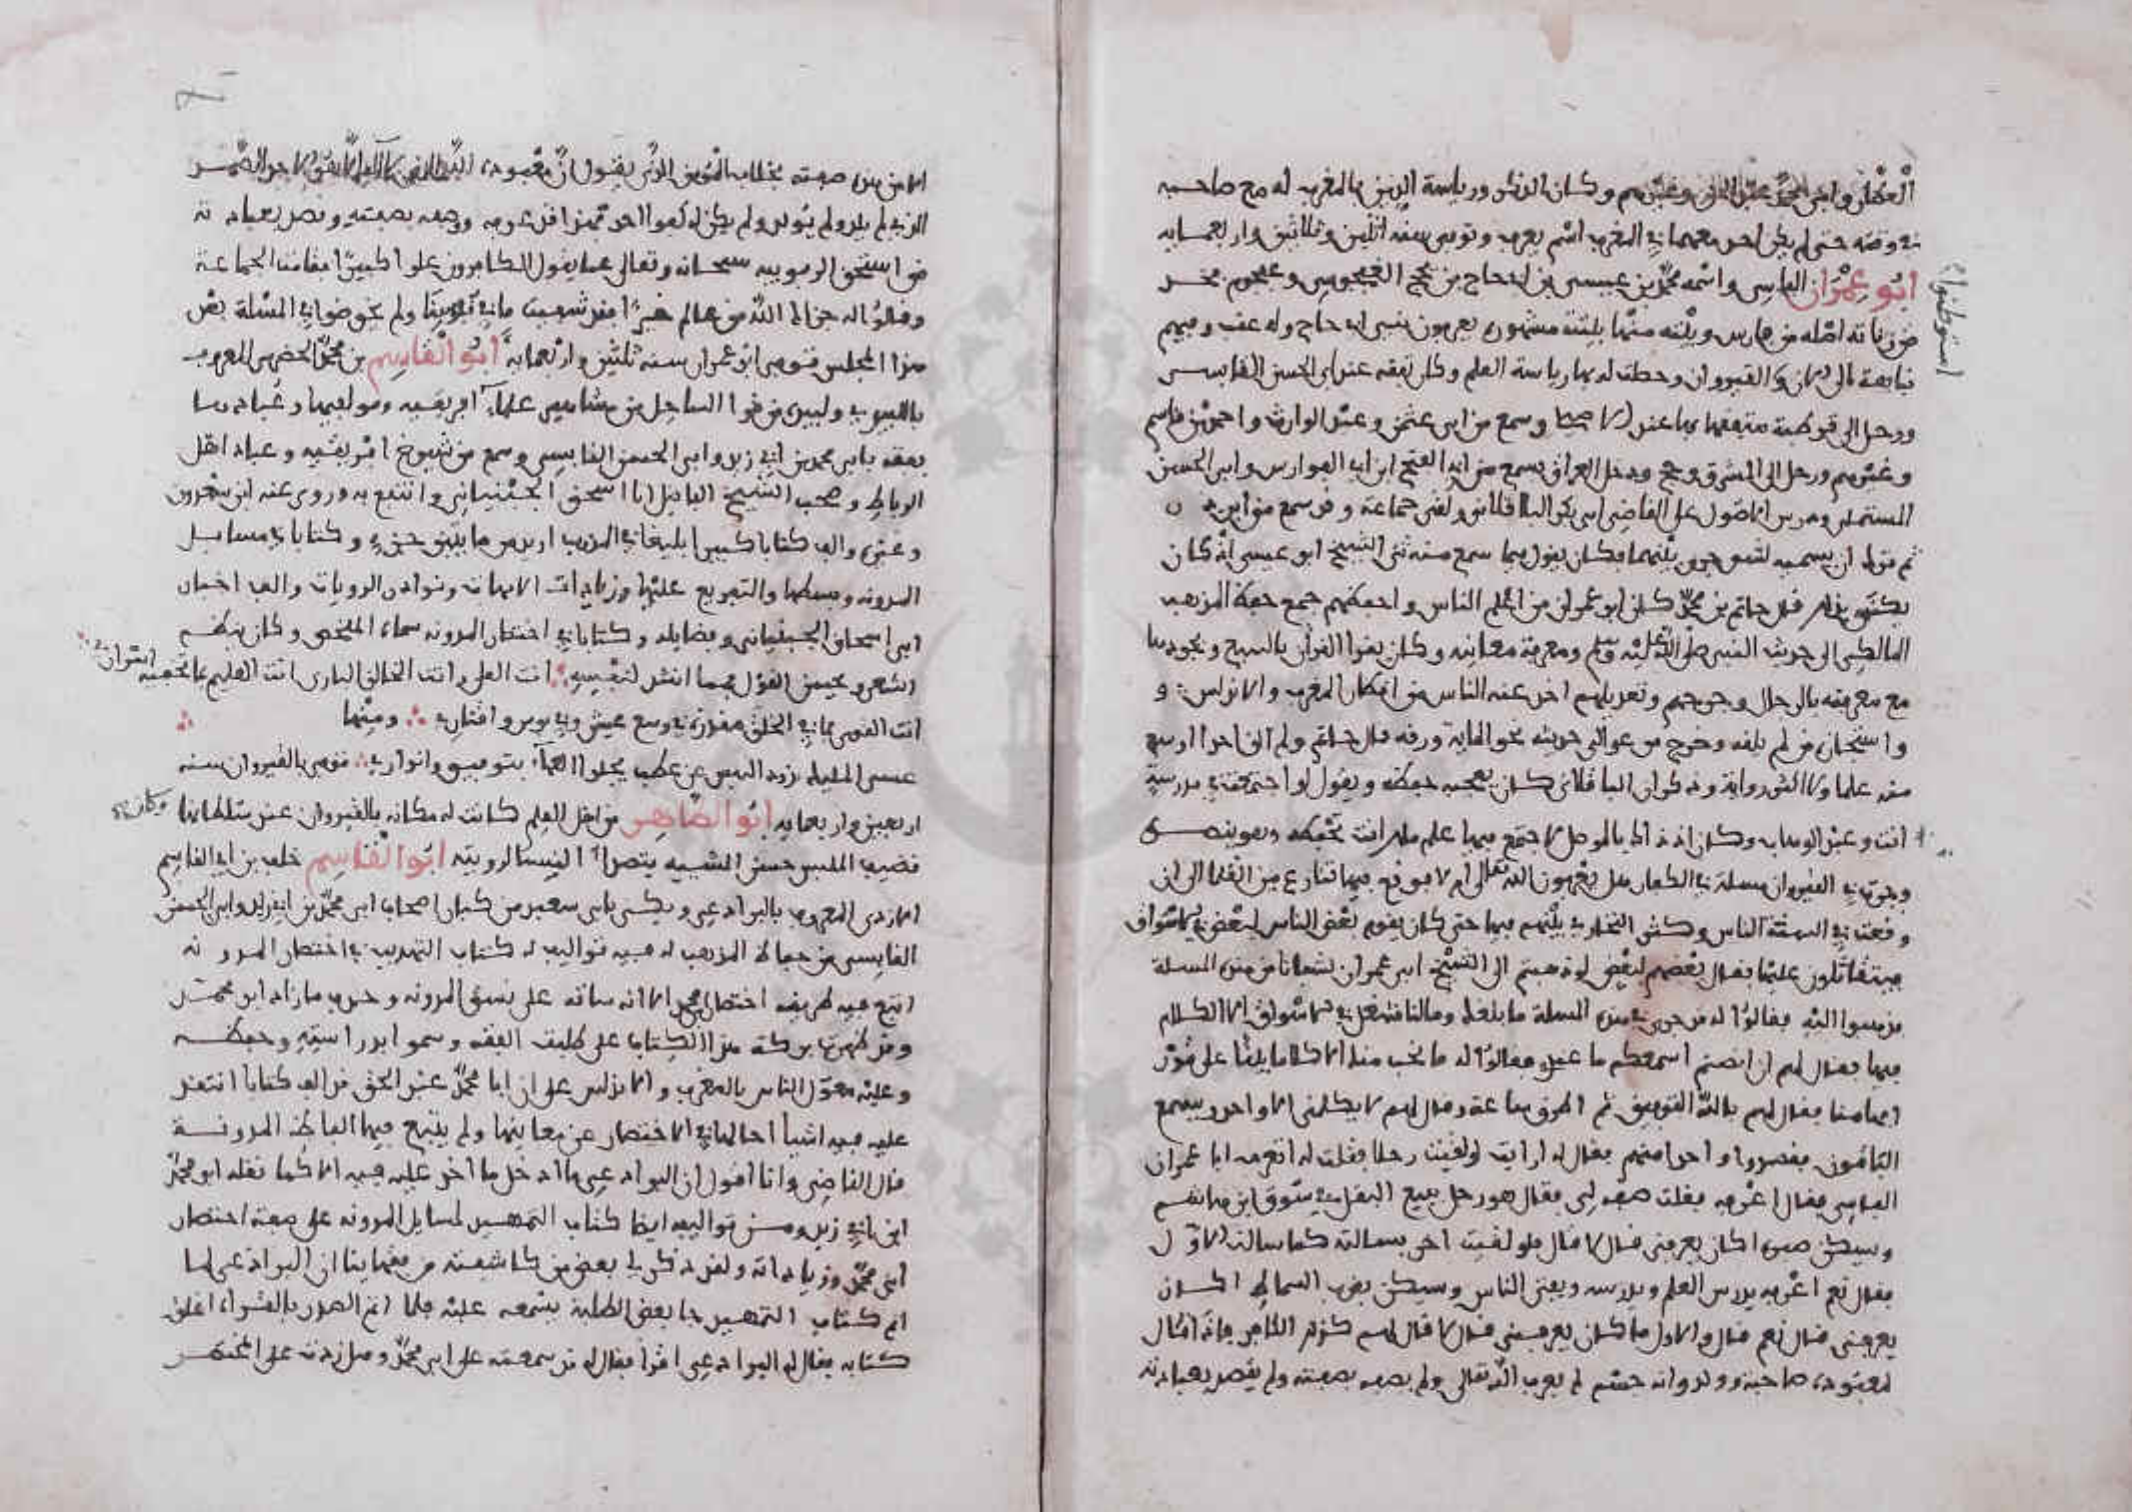 العطار وابن محمد عبد الحق وغيرهم وكان الذكر ورياسة الدين بالمغرب له مع صاحبه
في وقته حتى لم يكن لاحد معهما في المغرب اسم يعرف وتوفي سنة اثنين وثلاثين واربعماية
ابو عمران الفاسي واسمه محمد بن عيسى بن ابي حاج بن يحج الغفجومي وغفجوم فخذ
من زناتة اصله من فاس وبيته منها بيته مشهور يعرفون ببني ابي حاج وله عقب وفيهم
نباهة الى الان القيروان وحصلت له بها رياسة العلم وكان تفقه عند ابي الحسن القابسي
استوطنوا
ورحل الى قرطبة فتفقه بها عند الاصيلي وسمع من ابي عثمن وعبد الوارث واحمد بن قاسم
وغيرهم ورحل الى المشرق وحج ودخل العراق فسمع من ابي الفتح ابن ابي الفوارس وابي الحسن
المستملي ودرس الاصول على القاضي ابي بكر الباقلاني ولقي جماعة وقد سمع من ابي ذر
ثم ترك ان يسميه لشيء جرى بينهما فكان يقول فيما سمع منه ثنى الشيخ ابو عيسى لانه كان
يكنى بذلك قال حاتم بن محمد كان ابو عمران من اعلم الناس واحفظهم جمع حفظ المذهب
المالكي الى حديث النبي صلى الله عليه وسلم ومعرفة معانيه وكان يقرا القران بالسبع ويجودها
مع معرفته بالرجال وجرحهم وتعديلهم اخذ عنه الناس من اقطار المغرب والاندلس و
واستجاز من لم يلقه وخرج من عوالي حديثه نحو الماية ورقة قال حاتم ولم الق احدا اوسع
منه علما ولا اكثر رواية وذكر ان الباقلاني كان يعجبه حفظه ويقول لو اجتمعت في مدرستي
انت وعبد الوهاب وكان اذ ذاك بالموصل لاجتمع فيها علم ملك انت تحفظه وهو ينصره
وجرت في القيروان مسلة في الكفار هل يعرفون الله تعالى ام لا فوقع فيها تنازع من العلما الى ان
وقعت في السنة الناس وكثر التجاري بينهم فيها حتى كان يقوم بعض الناس لبعض في الاسواق
فيتقاتلون عليها فقال بعضهم لبعض لو ذهبتم الى الشيخ ابي عمران لشفانا من هذه المسلة
فذهبوا اليه فقالوا له قد جرى في هذه المسلة ما بلغك وما لنا شغل في اسواقنا الا الكلام
فيها فقال لهم ان انصتم اسمعتكم ما عندي فقالوا له ما نحب منك الا كلاما بينا على قدر
افهامنا فقال لهم بالله التوفيق ثم اطرق ساعة وقال لهم لا يكلمني الا واحد ويسمع
الباقون فقصدوا واحدا منهم فقال له ارايت لو لقيت رجلا فقلت له اتعرف ابا عمران
الفاسي فقال اعرفه فقلت صفه لي فقال هو رجل يبيع البقل في سوق ابن هاشم
ويسكن صبرة اكان يعرفني قال لا قال فلو لقيت اخر فسالته كما سالت الاول
فقال نعم اعرفه يدرس العلم ويدرسه ويفتي الناس ويسكن بغرب السماط اكان
يعرفني قال نعم قال والاول ما كان يعرفني قال لا قال لهم كذلك الكافر فاذا قال
لمعبوده صاحبة وولد وانه جسم لم يعرف الله تعالى ولم يصفه بصفته ولم يقصد بعبادته
الا من هذه صفته بخلاف المومن الذي يقول ان معبوده الله
الذي لم يلد ولم يولد ولم يكن له كفوا احد فهذا قد عرفه ووصفه بصفته وقصد بعبادته
من استحق الربوبية سبحانه وتعالى عما يقول الكافرون علوا كبيرا فقامت الجماعة
وقالوا له جزاك الله من عالم خيرا فقد شفيت ما في قلوبنا ولم يخوضوا في المسلة بعد
هذا المجلس فتوفي ابو عمران سنة ثلثين واربعماية ابو القاسم بن محمد الحضرمي المعروف
باللبيدي ولبيدة من قرا الساحل من مشاهير علماء افريقية ومولفيها وعبادها
تفقه بابي محمد بن ابي زيد وابي الحسن القابسي وسمع من شيوخ افريقية وعباد اهل
الرباط وصحب الشيخ الفاضل ابا اسحق الجبنياني وانتفع به وروى عنه ابن سعدون
وغيره والف كتابا كبيرا بليغا في المذهب ازيد من مايتي جزء وكتابا في مسايل
المدونة وبسطها والتفريع عليها وزيادات الامهات ونوادر الروايات والف اخبار
ابي اسحاق الجبنياني وفضايله وكتابا في اختصار المدونة سماه الملخص وكان ينظم
الشعر ويحسن القول فمما انشد لنفسه انت العلي وانت الخالق الباري انت العليم بما تخفيه اسراري
انت القوي بما في الخلق مقدرة في وسع عيش وفي بوس واقتار ومنها
عسى المليك يزود النفس عن عطب يجلوا العماء بتوفيق وانوار فتوفي بالقيروان سنة
اربعين واربعماية ابو الطاهر من اهل العلم كانت له مكانة بالقيروان عند سلطانها وكان
فصيح الملبس حسن الشيبة يتصدا النسا لرويته ابو القاسم خلف بن ابي القاسم
الازدي المعروف بالبراذعي ويكنى بابي سعيد من كبار اصحاب ابي محمد بن ابي زيد وابي الحسن
القابسي من حفاظ المذهب له فيه تواليف له كتاب التهذيب في اختصار المدونة
اتبع فيه طريقة اختصار ابي محمد الا انه ساقه على نسق المدونة وحذف ما زاد ابو محمد
وقد ظهرت بركة هذا الكتاب على طلبة الفقه وتيمنوا بدراسته وحفظه
وعليه معول الناس بالمغرب والاندلس على ان ابا محمد عبد الحق قد الف كتابا انتقد
عليه فيه اشيا احالها في الاختصار عن معانيها ولم يتبع فيها الفاظ المدونة
قال القاضي وانا اقول ان البراذعي ما ادخل ما اخذ عليه فيه الا كما نقله ابو محمد
ابن ابي زيد ومن تواليفه ايضا كتاب التمهيد لمسايل المدونة على صفة اختصار
ابي محمد وزياداته ولقد ذكر لي بعض من كاشفته من فقهاينا ان البراذعي لما
اتم كتاب التمهيد جا بعض الطلبة يسمعه عليه فلما اتم الصدر بالقراءة اغلق
كتابه فقال له البراذعي اقرا فقال له قد سمعته على ابي محمد وهل زدت على المختصر